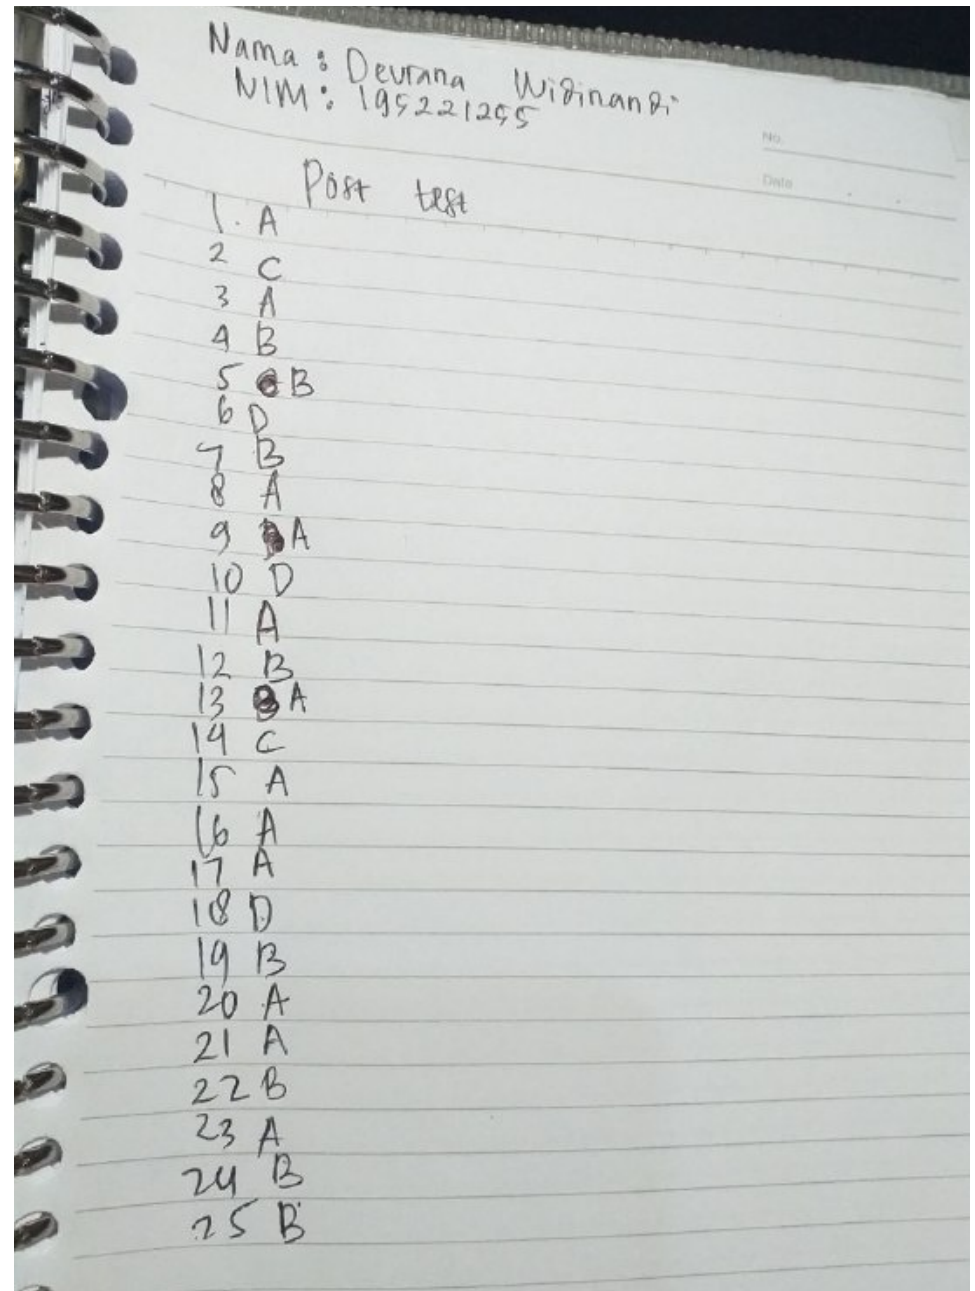 Nama : Devrana Widinandi
NIM : 195221255
No.
Date
Post test
1. A
2 C
3 A
4 B
5 B
6 D
7 B
8 A
9 A
10 D
11 A
12 B
13 A
14 C
15 A
16 A
17 A
18 D
19 B
20 A
21 A
22 B
23 A
24 B
25 B